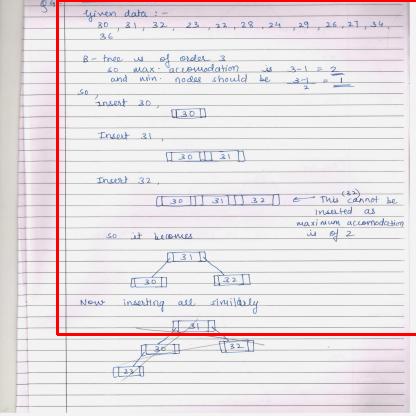 Q4
Given data :-
30, 31, 32, 23, 22, 28, 24, 29, 26, 27, 34,
36
B-tree is of order 3
so max. accomodation is 3-1 = 2
and min. nodes should be 3-1/2 = 1
So,
insert 30,
30
Insert 31,
30 31
Insert 32,
30 31 32 ← This (32) cannot be
inserted as
maximum accomodation
is of 2
so it becomes
31
30 32
Now inserting all similarly
31
30 32
23